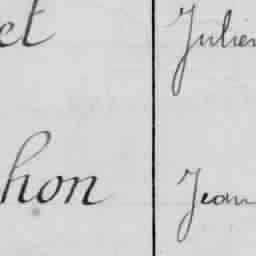 et Julien
hon Jean